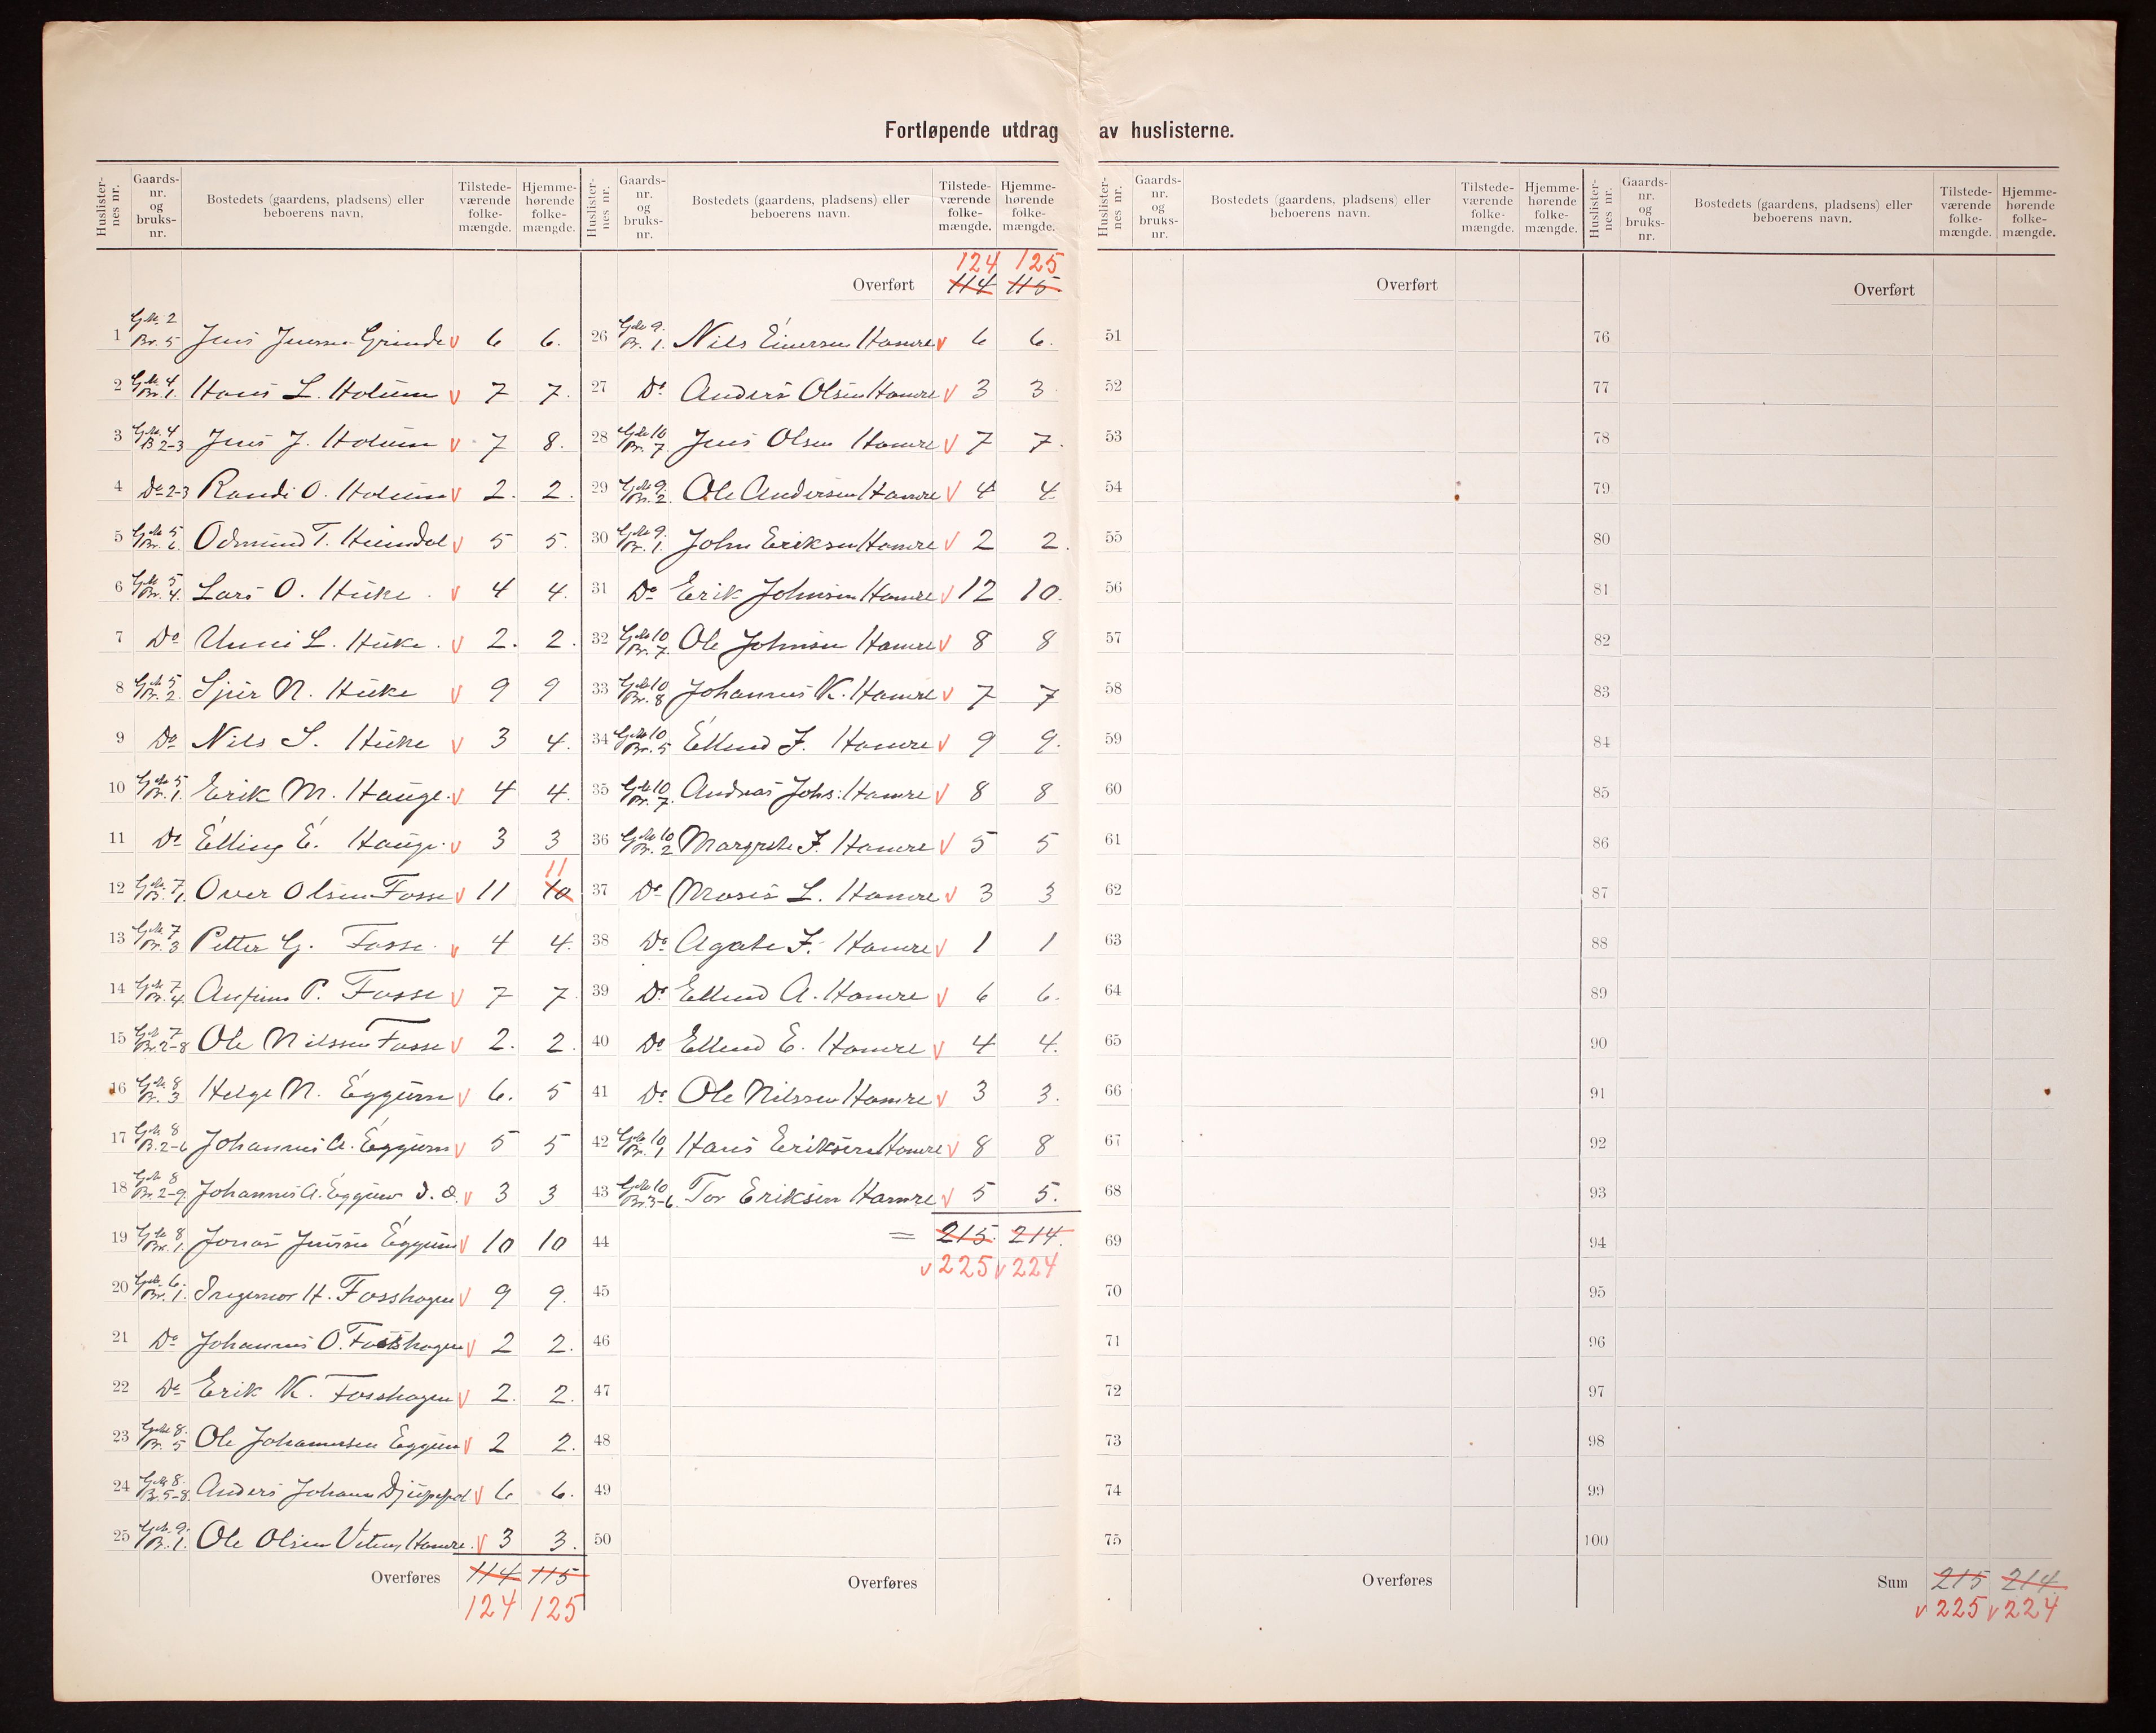 Fortløpende utdrag av huslisterne.
Huslisternes nr. Gaards-nr. og bruks-nr. Bostedets (gaardens, pladsens) eller beboerens navn. Tilstede-værende folke-mængde. Hjemme-hørende folke-mængde.
1 G.№ 2 Br. 5 Jens Jensen Grinde v 6 6.
2 G.№ 4 Br. 1. Hans L. Holum v 7 7.
3 G.№ 4 B 2-3 Jens J. Holum v 7 8.
4 Do 2-3 Randi O. Holum v 2. 2.
5 G.№ 5 Br. 6. Odmund T. Heimdal v 5 5.
6 G.№ 5 Br. 4. Lars O. Huke. v 4 4.
7 Do Unni L. Huke. v 2. 2.
8 G.№ 5 Br. 2. Sjur N. Huke v 9 9
9 Do Nils S. Huke v 3 4.
10 G.№ 5 Br. 1. Erik M. Hauge. v 4 4.
11 Do Elling E. Hauge. v 3 3
11
12 G.№ 7 Br. 1. Over Olsen Fosse v 11 10
13 G.№ 7 Br. 3 Petter G. Fosse. v 4 4.
14 G.№ 7 Br. 4. Anfinn P. Fosse v 7 7.
15 G.№ 7 Br. 2-8 Ole Nilssen Fosse v 2. 2.
16 G.№ 8 Br. 3 Helge N. Eggum v 6. 5
17 G.№ 8 B. 2-6 Johannes A. Eggum v 5 5
18 G.№ 8 Br. 2-9. Johannes A. Eggum d. o. v 3 3
19 G.№ 8 Br. 1. Jonas Jensen Eggum v 10 10
20 G.№ 6. Br. 1. Ingemor H. Fosshagen v 9 9.
21 Do Johannes O. Fosshagen v 2 2.
22 Do Erik K. Fosshagen v 2. 2.
23 G.№ 8. Br. 5 Ole Johannesen Eggum v 2 2.
24 G.№ 8. B. 5-8. Anders Johans v 6 6.
25 G.№ 9. B. 1. Ole Olsen Hamre. v 3 3.
Overføres 114 115
124 125
Huslisternes nr. Gaards-nr. og bruks-nr. Bostedets (gaardens, pladsens) eller beboerens navn. Tilstede-værende folke-mængde. Hjemme-hørende folke-mængde.
124 125
Overført 114 115.
26 G.№ 9. Br. 1. Nils Einersen Hamre v 6 6.
27 Do Anders Olsen Hamre v 3 3
28 G.№ 10 Br. 7. Jens Olsen Hamre v 7 7.
29 G.№ 9. Br. 2. Ole Andersen Hamre v 4 4.
30 G.№ 9. Br. 1. John Eriksen Hamre v 2 2.
31 Do Erik Johnsen Hamre v 12 10.
32 G.№ 10 Br. 7. Ole Johnsen Hamre v 8 8
33 G.№ 10 Br. 8 Johannes K. Hamre v 7 7
34 G.№ 10 Br. 5 Ellend J. Hamre v 9 9.
35 G.№ 10 Br. 7. Andreas Johs: Hamre v 8 8
36 G.№ 10 Br. 2 Margrete J. Hamre v 5 5
37 Do Mosis L. Hamre v 3 3
38 Do Agate J. Hamre v 1 1
39 Do Ellend A. Hamre v 6 6.
40 Do Ellend E. Hamre v 4 4.
41 Do Ole Nilssen Hamre v 3 3.
42 G.№ 10 Br. 1 Hans Eriksen Hamre v 8 8
43 G.№ 10 Br. 3-6. Tor Eriksen Hamre v 5 5.
44 = 215. 214.
v 225 v 224
45
46
47
48
49
50
Overføres
Huslisternes nr. Gaards-nr. og bruks-nr. Bostedets (gaardens, pladsens) eller beboerens navn. Tilstede-værende folke-mængde. Hjemme-hørende folke-mængde.
Overført
51
52
53
54
55
56
57
58
59
60
61
62
63
64
65
66
67
68
69
70
71
72
73
74
75
Overføres
Huslisternes nr. Gaards-nr. og bruks-nr. Bostedets (gaardens, pladsens) eller beboerens navn. Tilstede-værende folke-mængde. Hjemme-hørende folke-mængde.
Overført
76
77
78
79
80
81
82
83
84
85
86
87
88
89
90
91
92
93
94
95
96
97
98
99
100
Sum 215 214.
v 225 v 224